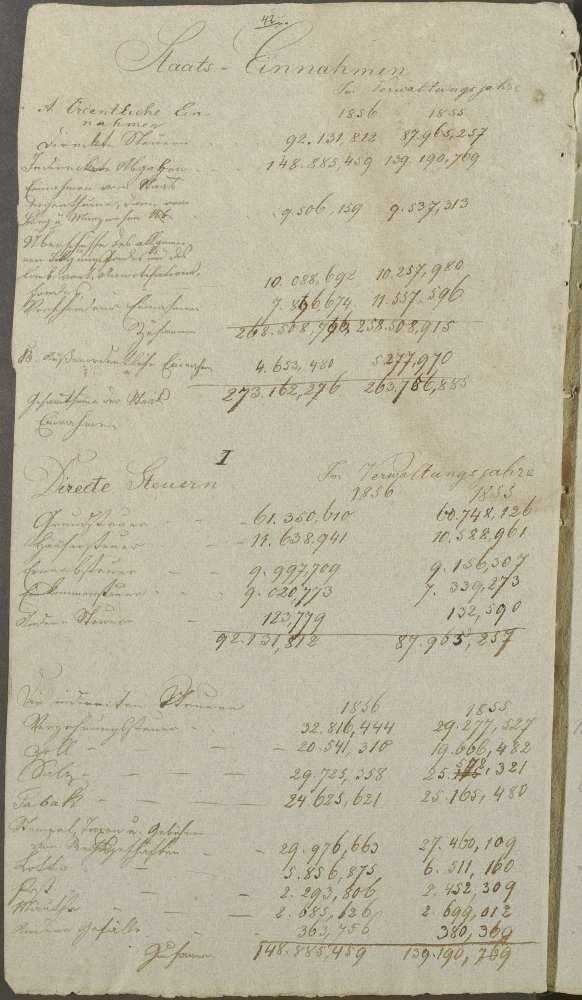 42
Staats-Einnahmen
Im Verwaltungsjahre
A. Ordentliche Ein-
nahmen
1856 1855
directe Steuern 92.131,812 87.965,257
Indirecte Abgaben 148.885,459 139.190,769
Einnahmen vom Staats-
9.506,159 9.537,313
Überschüsse des allgemei-
nen Tilgungsfondes
10.088,692 10.257,980
Verschiedene Einnahmen 7.896,674 11.557.596
Zusammen 268.508,796 258.508,915
B. Außerordentliche Einnahmen 4.653,480 5277,970
Gesammtsumme der Staats
Einnahmen 273.162,276 263,786,885
I
Directe Steuern
Im Verwaltungsjahre
1856 1855
Grundsteuer 61.350,610 60.748,126
Häusersteuer 11.638.941 10.588,961
Erwerbsteuer 9.997,709 9.156,307
Einkommensteuer 9.020,773 7.339,273
Andere Steuern 123,779 132,590
92.131,812 87.965,257
Die indirecten Steuern 1856 1855
Verzehrungssteuer 32.816,444 29.277,527
Zoll 20.541,310 19.666,482
Salz 29.725,358 25.578,321
Tabak 24.625,621 25.165,480
Stempel, Taxen u. Gebühren
29.976,663 27.460,109
Lotto 5.856,875 6.511,160
Post 2.293,806 2.452,309
Mauthe 2.685,626 2.699,012
Andere Gefälle 363,756 380,369
Zusammen 148.885,459 139.190,769